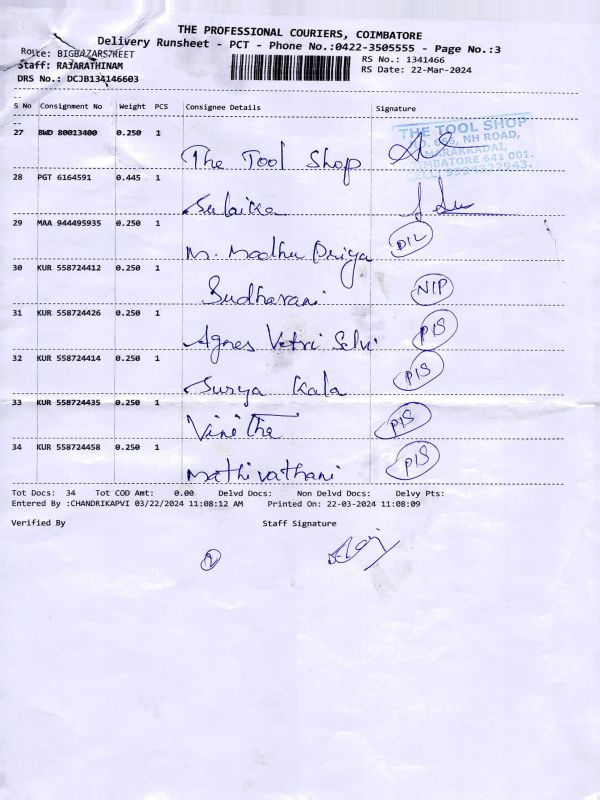 THE PROFESSIONAL COURIERS, COIMBATORE
Delivery Runsheet - PCT - Phone No.:0422-3505555 - Page No.:3
Route: BIGBAZARSTREET
Staff: RAJARATHINAM
DRS No.: DCJB134146603
RS No.: 1341466
RS Date: 22-Mar-2024
S No Consignment No Weight PCS Consignee Details Signature
27 BWD 80013400 0.250 1
The Tool Shop
THE TOOL SHOP
NH ROAD,
COIMBATORE 641 001.
28 PGT 6164591 0.445 1
Sulaika
29 MAA 944495935 0.250 1
M. Madhu Priya DIL
30 KUR 558724412 0.250 1
Sudharani NIP
31 KUR 558724426 0.250 1
Agnes Vetri Selvi PIS
32 KUR 558724414 0.250 1
Surya Kala PIS
33 KUR 558724435 0.250 1
Vinitha PIS
34 KUR 558724458 0.250 1
Mathivathani PIS
Tot Docs: 34 Tot COD Amt: 0.00 Delvd Docs: Non Delvd Docs: Delvy Pts:
Entered By :CHANDRIKAPVI 03/22/2024 11:08:12 AM Printed On: 22-03-2024 11:08:09
Verified By Staff Signature